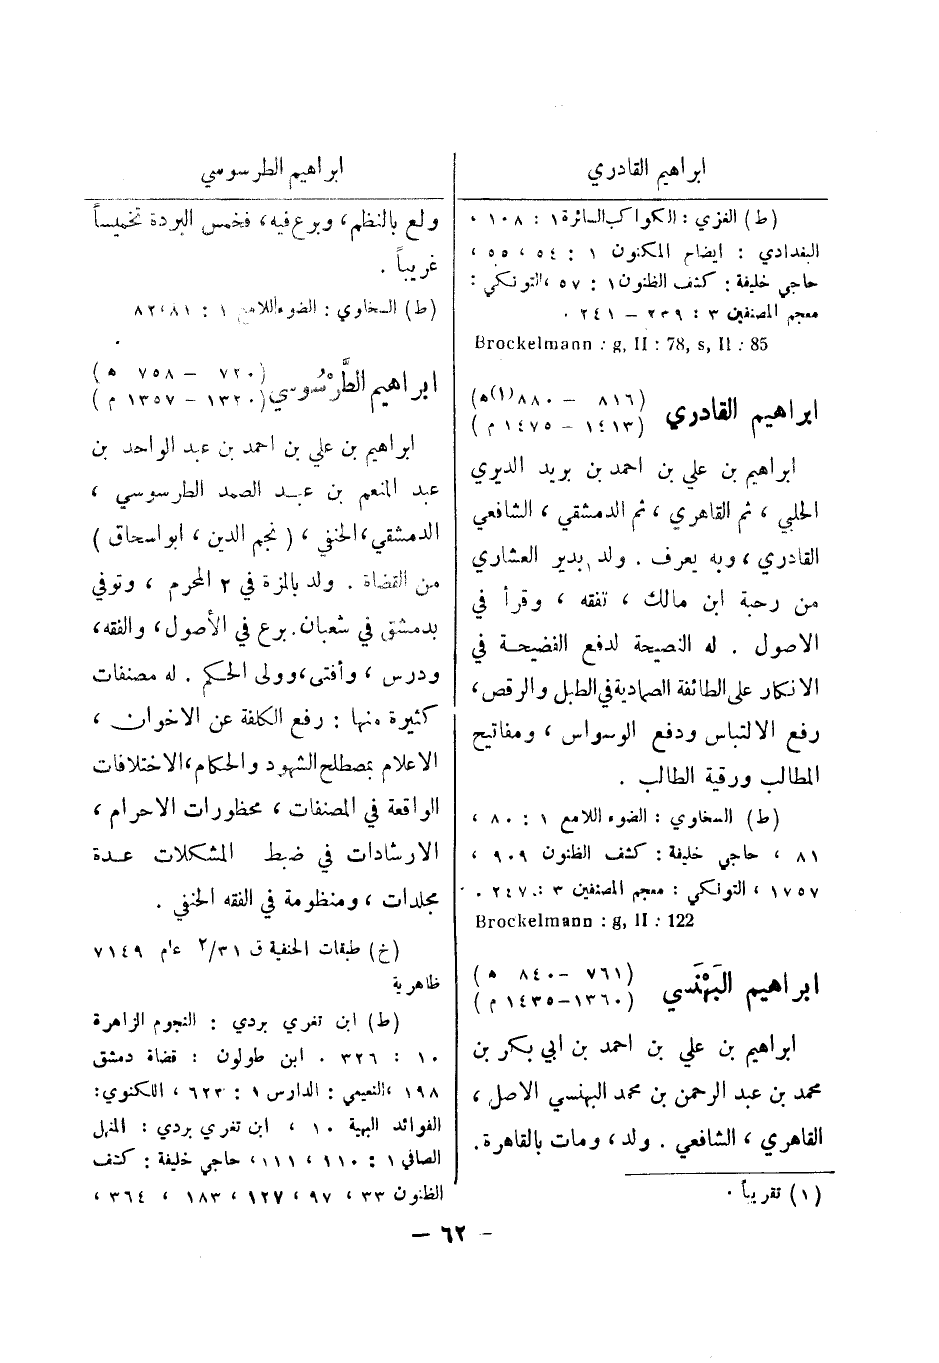 ابراهيم القادري
(ط) الغزي : الكواكب السائرة ١ : ١٠٨ ،
البغدادي : ايضاح المكنون ١ : ٥٤ ، ٥٥ ،
حاجي خليفة : كشف الظنون ١ : ٥٧ ، التونكي :
معجم المصنفين ٣ : ٢٣٩ – ٢٤١ .
Brockelmann : g, II : 78, s, II : 85
ابراهيم القادري (٨١٦ – ٨٨٠(١)ه)
(١٤١٣ – ١٤٧٥ م)
ابراهيم بن علي بن احمد بن بريد الديري
الحلبي ، ثم القاهري ، ثم الدمشقي ، الشافعي
القادري ، وبه يعرف . ولد بدير العشاري
من رحبة ابن مالك ، تفقه ، وقرأ في
الاصول . له النصيحة لدفع الفضيحة في
الانكار على الطائفة الصمادية في الطبل والرقص ،
رفع الالتباس ودفع الوسواس ، ومفاتيح
المطالب ورقية الطالب .
(ط) السخاوي : الضوء اللامع ١ : ٨٠ ،
٨١ ، حاجي خليفة : كشف الظنون ٩٠٩ ،
١٧٥٧ ، التونكي : معجم المصنفين ٣ : ٢٤٧ .
Brockelmann : g, II : 122
ابراهيم البَهْنَسي (٧٦١ – ٨٤٠ ه)
(١٣٦٠ – ١٤٣٥ م)
ابراهيم بن علي بن احمد بن ابي بكر بن
محمد بن عبد الرحمن بن محمد البهنسي الاصل ،
القاهري ، الشافعي . ولد ، ومات بالقاهرة .
(١) تقريباً .
ابراهيم الطرسوسي
ولع بالنظم ، وبرع فيه ، فخمس البردة تخميساً
غريباً .
(ط) السخاوي : الضوء اللامع ١ : ٨١ ، ٨٢
ابراهيم الطَّرْسُوسي (٧٢٠ – ٧٥٨ ه)
(١٣٢٠ – ١٣٥٧ م)
ابراهيم بن علي بن احمد بن عبد الواحد بن
عبد المنعم بن عبد الصمد الطرسوسي ،
الدمشقي ، الحنفي ، ( نجم الدين ، ابو اسحاق )
من القضاة . ولد بالمزة في ٢ المحرم ، وتوفي
بدمشق في شعبان . برع في الأصول ، والفقه ،
ودرس ، وأفتى ، وولى الحكم . له مصنفات
كثيرة منها : رفع الكلفة عن الاخوان ،
الاعلام بمصطلح الشهود والحكام ، الاختلافات
الواقعة في المصنفات ، محظورات الاحرام ،
الارشادات في ضبط المشكلات عدة
مجلدات ، ومنظومة في الفقه الحنفي .
(خ) طبقات الحنفية ق ٢/٣١ عام ٧١٤٩
ظاهرية
(ط) ابن تغري بردي : النجوم الزاهرة
١٠ : ٣٢٦ . ابن طولون : قضاة دمشق
١٩٨ ، النعيمي : الدارس ١ : ٦٢٣ ، اللكنوي :
الفوائد البهية ١٠ ، ابن تغري بردي : المنهل
الصافي ١ : ١١٠ ، ١١١ ، حاجي خليفة : كشف
الظنون ٣٣ ، ٩٧ ، ١٢٧ ، ١٨٣ ، ٣٦٤ ،
– ٦٢ –